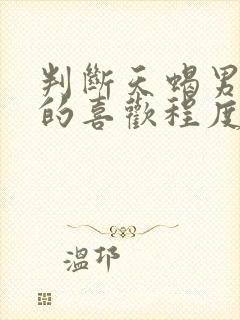 判斷天蠍男
的喜歡程度
溫邛